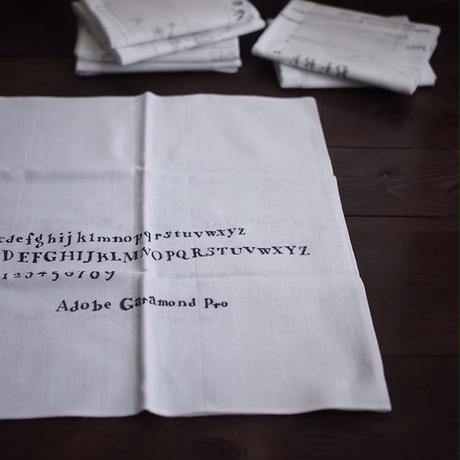 cdefghijklmnopqrstuvwxyz
DEFGHIJKLMNOPQRSTUVWXYZ
123456789
Adobe Garamond Pro